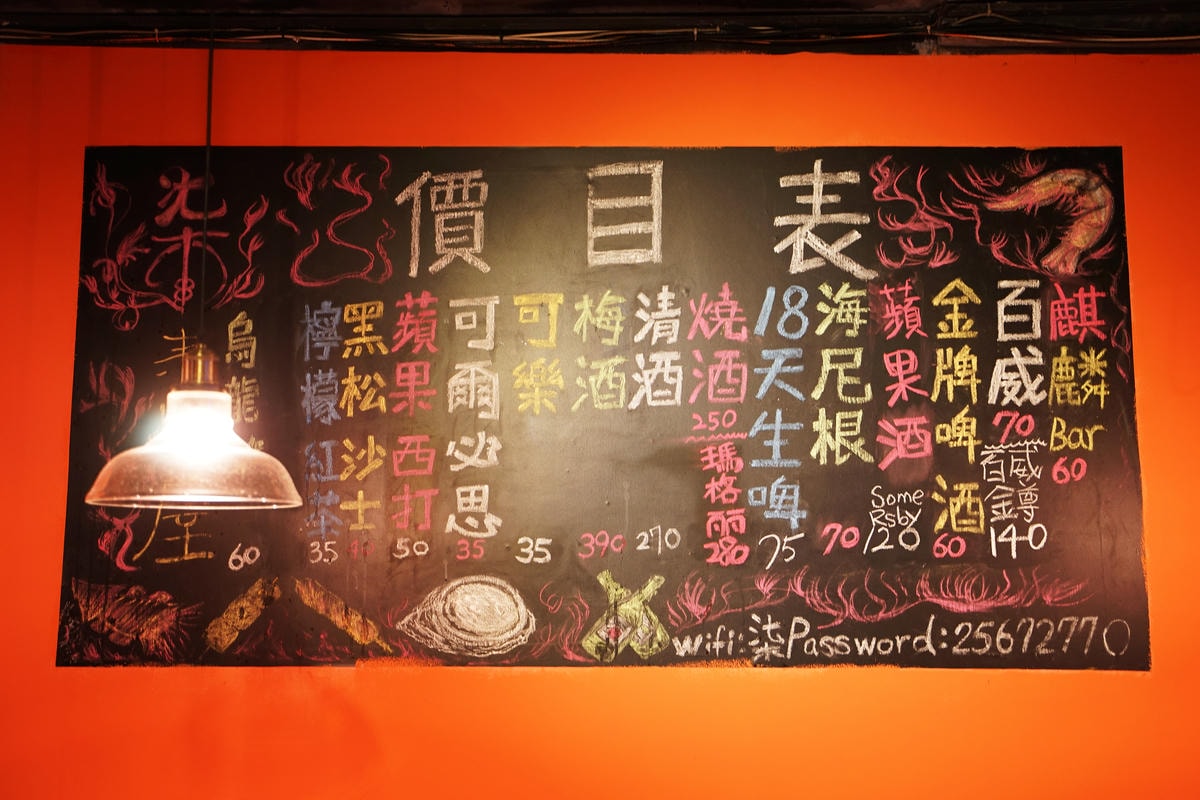 價目表
柒
麒麟
Bar
60
百威
70
百威
金罇
140
金牌啤酒
60
蘋果酒
Some
Rsby
120
海尼根
70
18天生啤
75
燒酒
250
瑪格麗
280
清酒
270
梅酒
390
可樂
35
可爾必思
35
蘋果西打
50
黑松沙士
40
檸檬紅茶
35
烏龍
60
wifi:柒Password:25672770